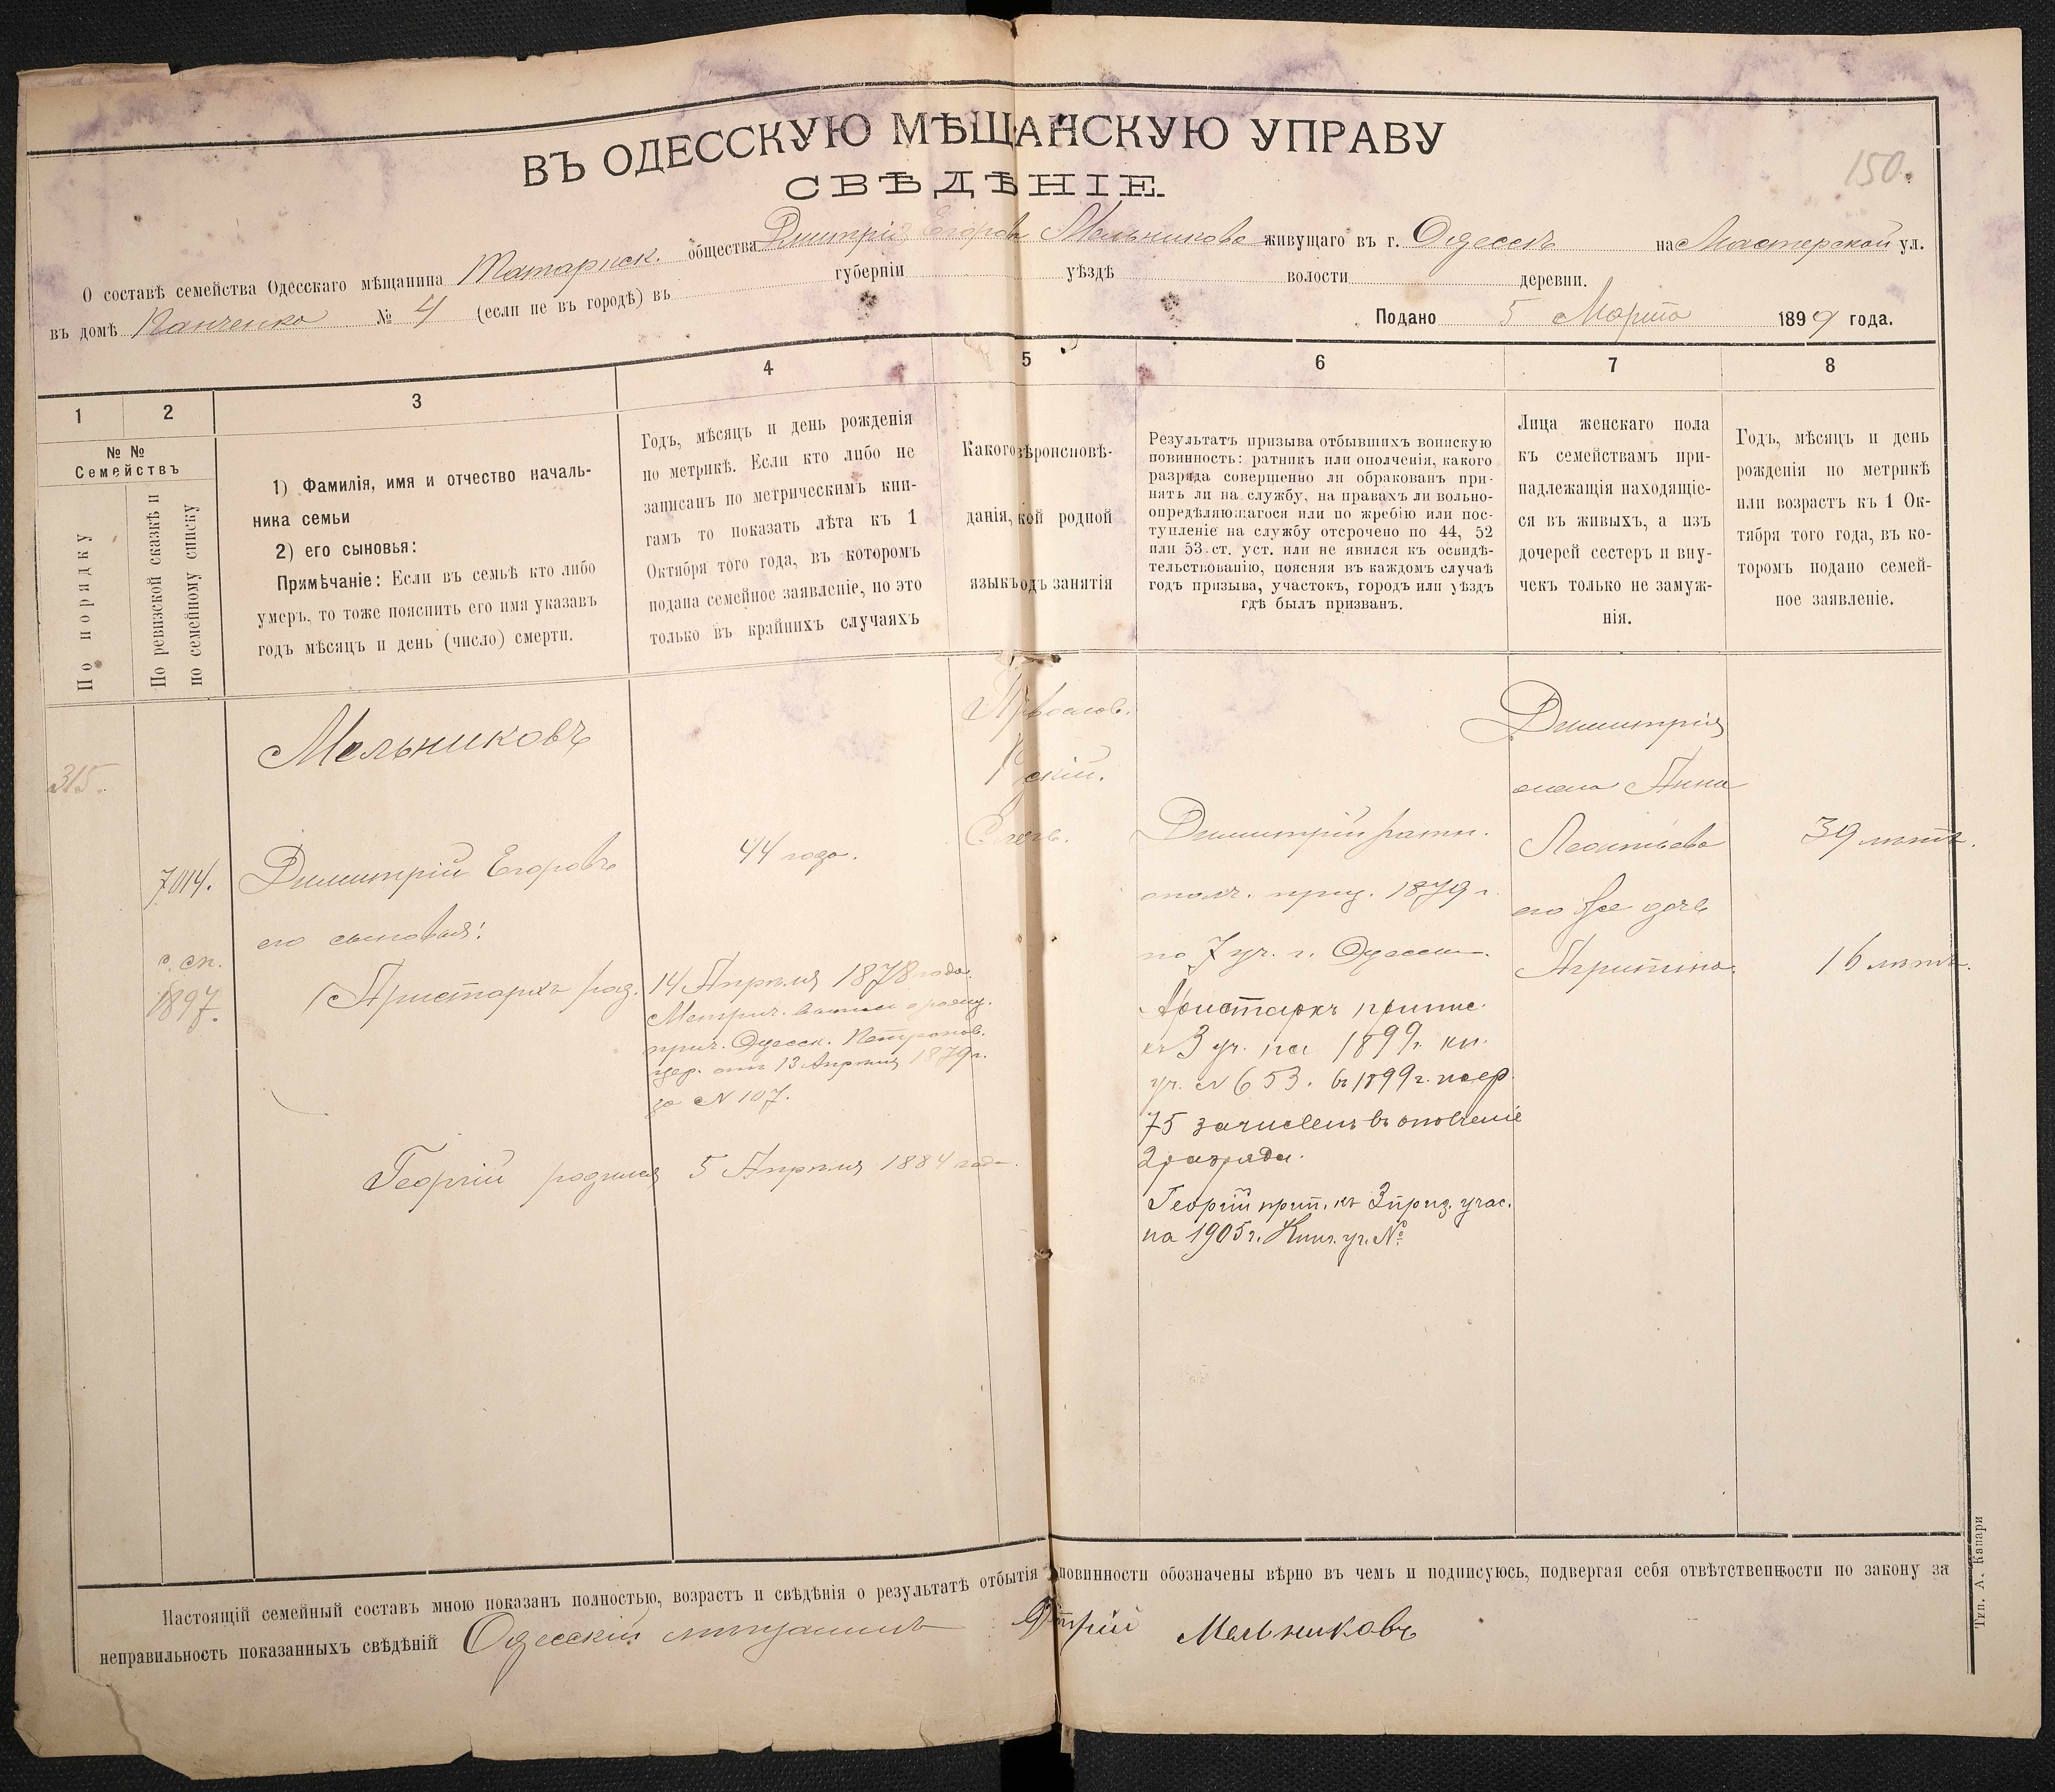 150.
ВЪ ОДЕССКУЮ МѢЩАНСКУЮ УПРАВУ
СВѢДѢНІЕ.
О составѣ семейства Одесскаго мѣщанина Татарпск. общества Дмитрія Егорова Мельникова живущаго въ г. Одессѣ на Мастерской ул.
въ домѣ Панченко № 4 (если не въ городѣ) въ губерніи уѣздѣ волости деревни.
Подано 5 Марта 1899 года.
1 2 3 4 5 6 7 8
№ №
Семействъ
По порядку
По ревизской сказкѣ и
по семейному списку
1) Фамилія, имя и отчество началь-
ника семьи
2) его сыновья:
Примѣчаніе: Если въ семьѣ кто либо
умеръ, то тоже пояснить его имя указавъ
годъ мѣсяцъ и день (число) смерти.
Годъ, мѣсяцъ и день рожденія
по метрикѣ. Если кто либо не
записанъ по метрическимъ кни-
гамъ то показать лѣта къ 1
Октября того года, въ которомъ
подана семейное заявленіе, но это
только въ крайнихъ случаяхъ
Какого вѣроисповѣ-
данія, кой родной
языкъ одъ занятія
Результатъ призыва отбывшихъ воинскую
повинность: ратникъ или ополченія, какого
разряда совершенно ли обракованъ при-
нятъ ли на службу, на правахъ ли вольно-
опредѣляющагося или по жребію или пос-
тупленіе на службу отсрочено по 44, 52
или 53 ст. уст. или не явился къ освидѣ-
тельствованію, поясняя въ каждомъ случаѣ
годъ призыва, участокъ, городъ или уѣздъ
гдѣ былъ призванъ.
Лица женскаго пола
къ семействамъ при-
надлежащія находящіе-
ся въ живыхъ, а изъ
дочерей сестеръ и вну-
чекъ только не замуж-
нія.
Годъ, мѣсяцъ и день
рожденія по метрикѣ
или возрастъ къ 1 Ок-
тября того года, въ ко-
торомъ подано семей-
ное заявленіе.
315.
7014.
с. сп.
1897.
Мельниковъ
Димитрій Егоровъ
его сыновья:
Аристархъ род.
Георгій родился
44 года.
14 Апрѣля 1878 года
Метрич. выпись о рожд.
прич. Одесск. Петропав.
цер. отъ 13 Апрѣля 1879 г.
за № 107.
5 Апрѣля 1884 года
Димитрій ратн.
ополч. приз. 1879 г.
по 7 уч. г. Одессы.
Аристархъ припис.
къ 3 уч. на 1899 г. кн.
уч. № 653. въ 1899 г. по жер.
75 зачисленъ въ ополченіе
2 разряда.
Георгій прип. къ 3 приз. учас.
на 1905 г. Книг. уч. №
Димитрія
жена Анна
Леонтьева
его же дочь
Агрипина
39 лѣтъ.
16 лѣтъ.
Настоящій семейный составъ мною показанъ полностью, возрастъ и свѣдѣнія о результатѣ отбытія повинности обозначены вѣрно въ чемъ и подписуюсь, подвергая себя отвѣтственности по закону за
неправильность показанныхъ свѣдѣній Одесскій мѣщанинъ Дмтрій Мельниковъ
Тип. А. Капари